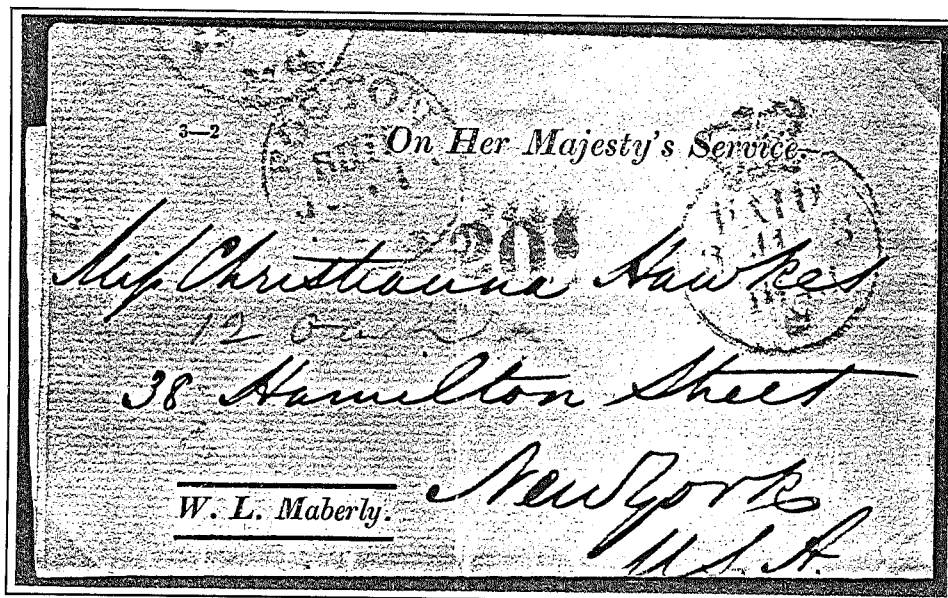 3—2
On Her Majesty's Service.
BOSTON
PAID
20
Miss Christianna Hawkes
12
38 Hamilton Street
New York
U.S.A.
W. L. Maberly.